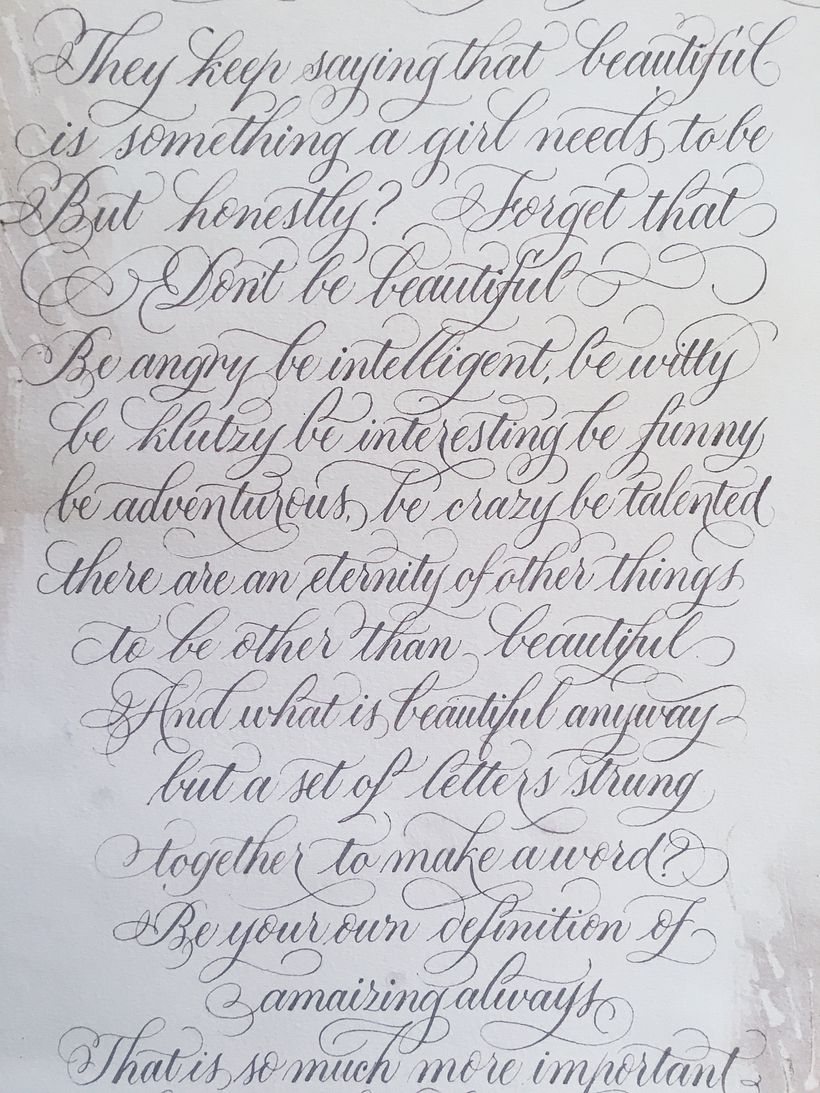 They keep saying that beautiful
is something a girl needs to be
But honestly? Forget that
Don't be beautiful
Be angry be intelligent, be witty
be klutzy be interesting be funny
be adventurous, be crazy be talented
there are an eternity of other things
to be other than beautiful
And what is beautiful anyway
but a set of letters strung
together to make a word?
Be your own definition of
amaizing always
That is so much more important